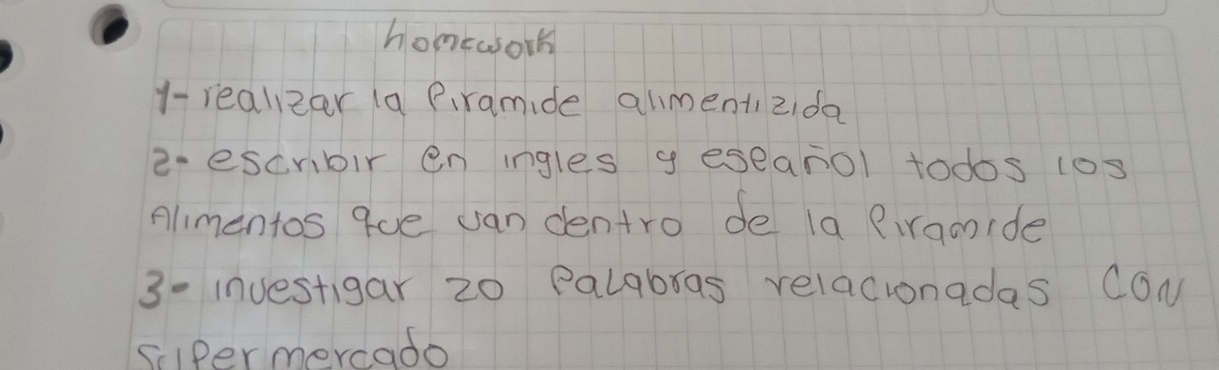 homework
1- realizar la Piramide alimentizida
2- escribir en ingles y español todos los
Alimentos que van dentro de la Piramide
3- investigar 20 Palabras relacionadas CON
supermercado